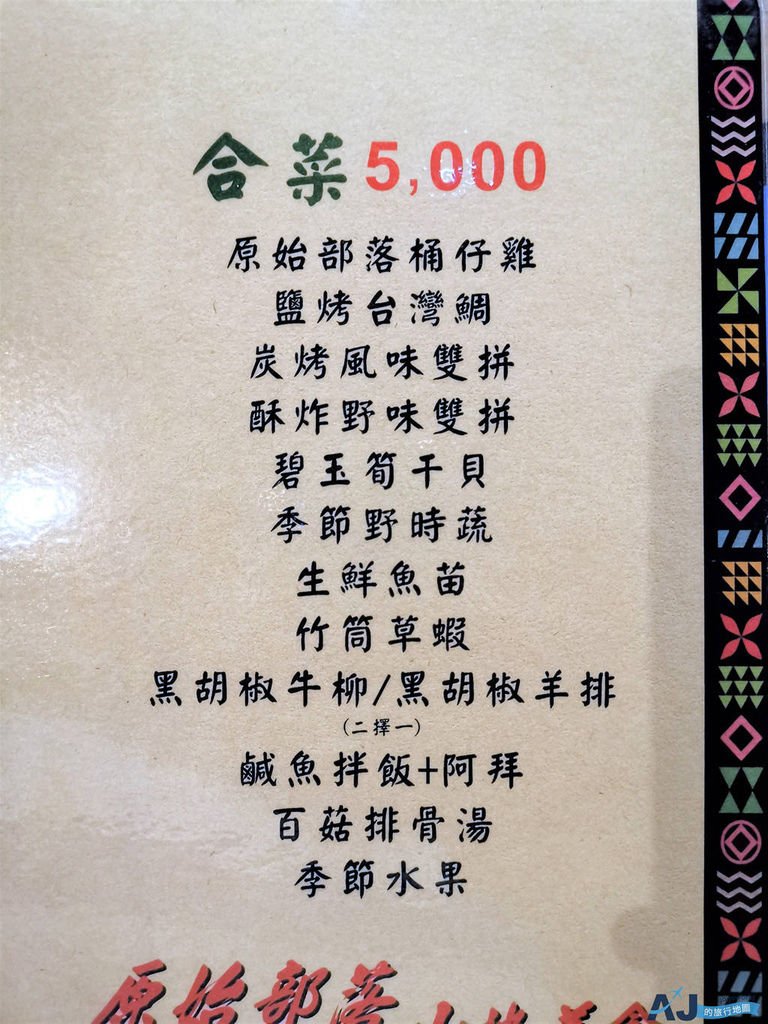 合菜5,000
原始部落桶仔雞
鹽烤台灣鯛
炭烤風味雙拼
酥炸野味雙拼
碧玉筍干貝
季節野時蔬
生鮮魚苗
竹筒草蝦
黑胡椒牛柳/黑胡椒羊排
(二擇一)
鹹魚拌飯+阿拜
百菇排骨湯
季節水果
原始部落
AJ的旅行地圖